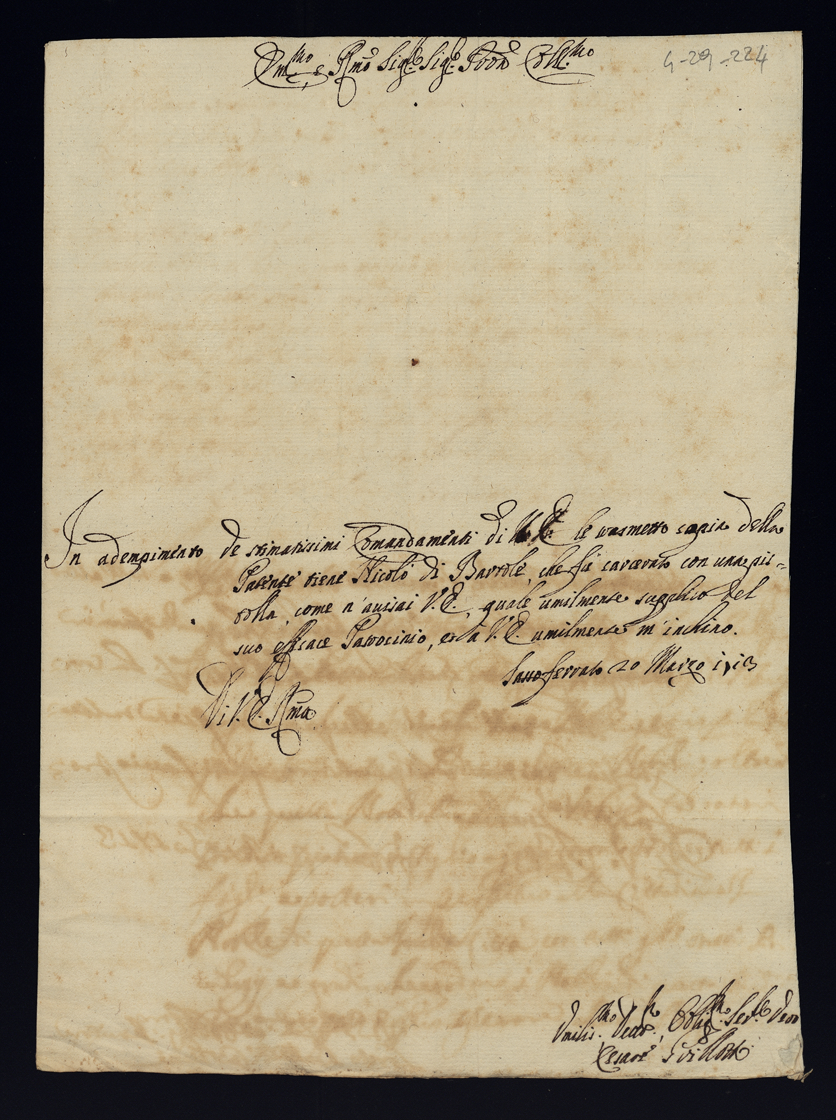 Em.mo e R.mo Sig.r Sig.r P.ron Coll.mo
4-29-224
In adempimento de stimatissimi Comandamenti di V. E. le trasmetto copia della
Patente tiene Nicolò di Bartolo, che fù carcerato con una pis=
tolla, come n'avisai V. E., quale umilmente supplico del
suo efficace Patrocinio, et a V. E. umilmente m'inchino.
Sassoferrato 20 Marzo 1713
Di V. E. R.ma
Umilis.mo Dev.mo Obblig.mo Ser.re
Cesare